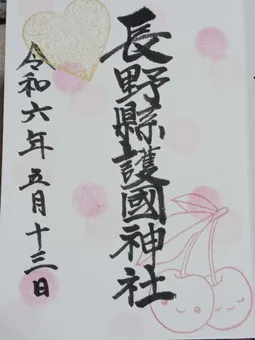 長野縣護國神社
令和六年五月十三日